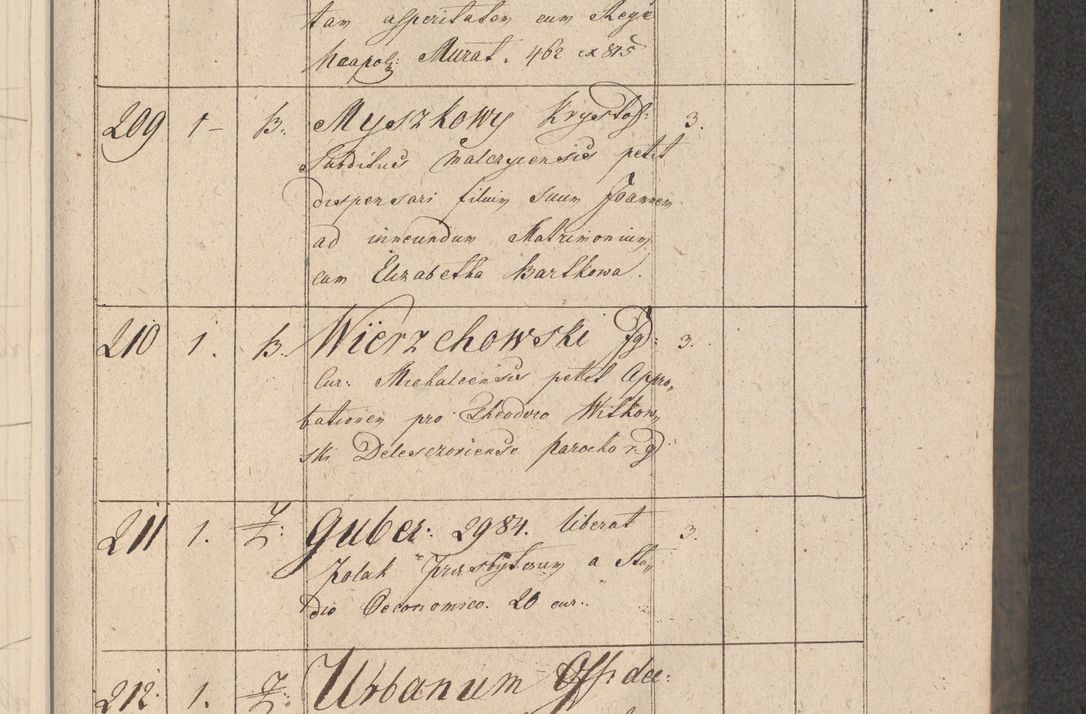 tam asperitatem cum Rege
Neapol: Murat. 462 ex 815
209 1 – B. Myszkowy Krystof: 3.
Subditus Malczycensis petit
dispensari filium suum Joannem
ad ineundum Matrimonium
cum Elizabetha Bartkowa.
210 1. B. Wierzchowski Ig: 3.
Cur. Michalcensis petit Appro„
bationem pro Theodoro Witkow„
ski Deleszoviensi parocho r. g.
211 1. Z: Guber: 2984. liberat 3.
Polak Presbyterum a Stu„
dio Oeconomico. 20 cur.
212. 1. Z: Urbanum Off: dec: